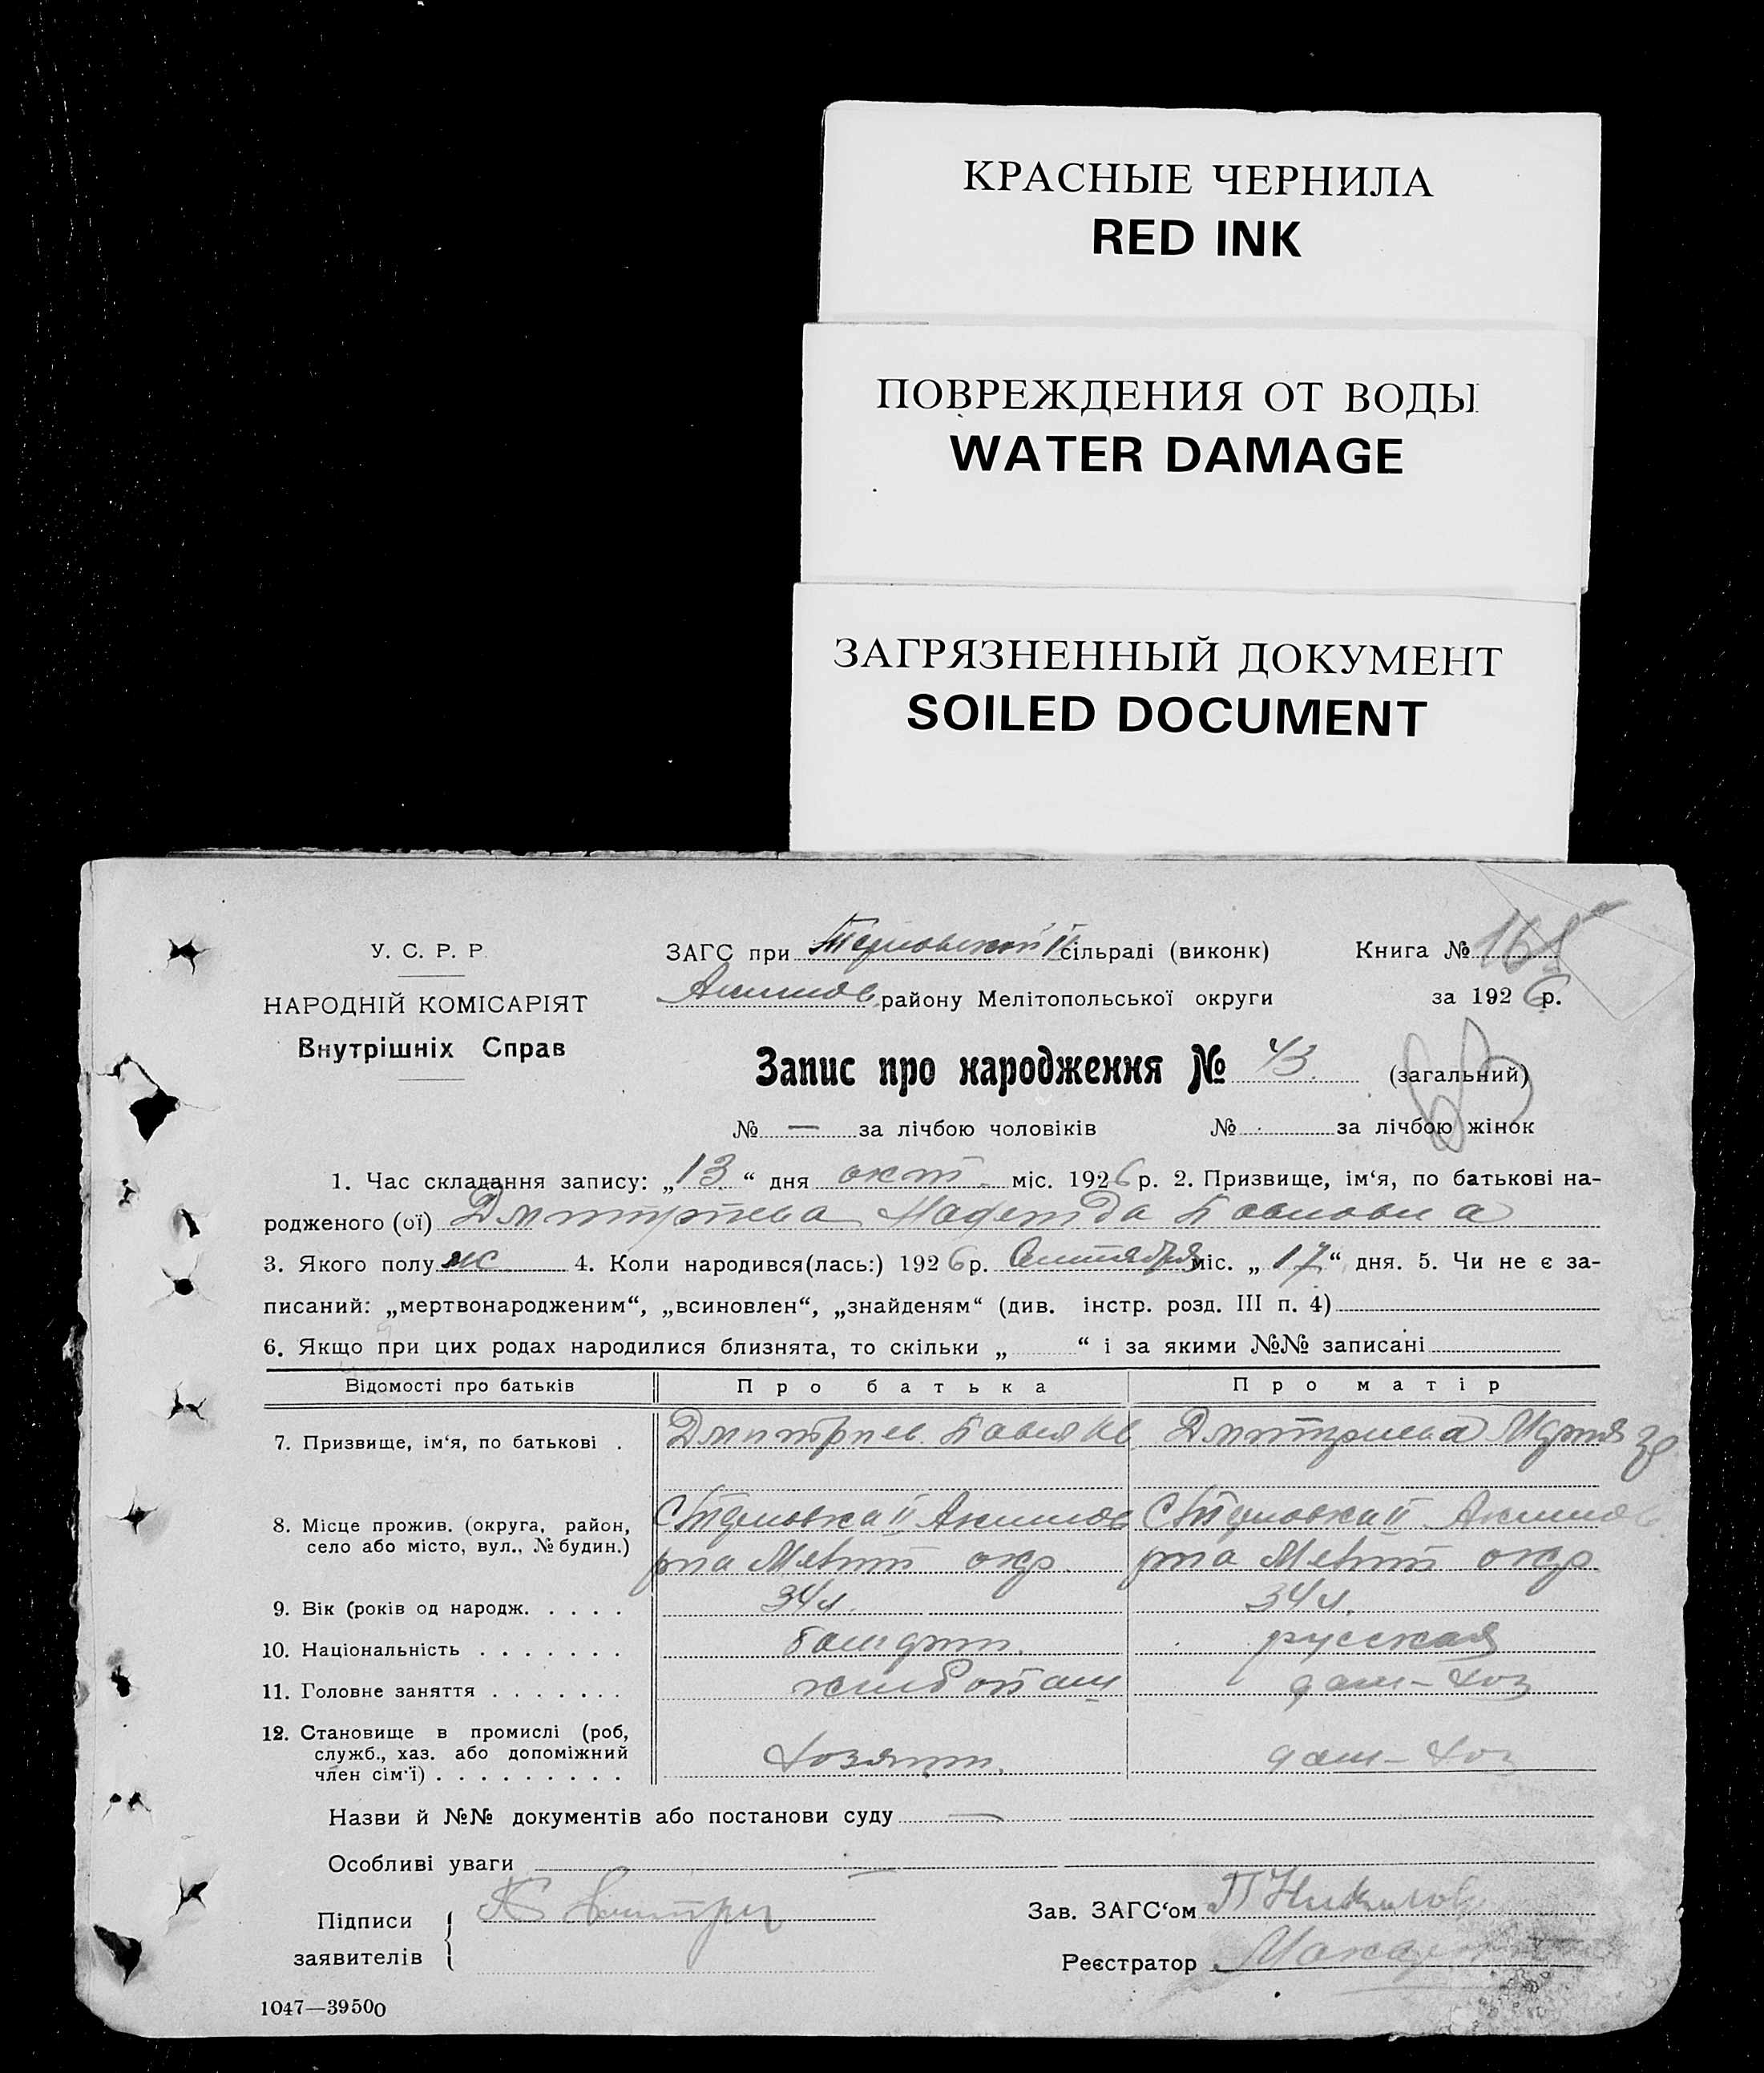 КРАСНЫЕ ЧЕРНИЛА
RED INK
ПОВРЕЖДЕНИЯ ОТ ВОДЫ
WATER DAMAGE
ЗАГРЯЗНЕННЫЙ ДОКУМЕНТ
SOILED DOCUMENT
У. С. Р. Р.
НАРОДНІЙ КОМІСАРІЯТ
Внутрішніх Справ
ЗАГС при сільраді (виконк)
Акимов району Мелітопольської округи
Книга №
за 1926 р.
Запис про народження № 43 (загальний)
№ — за лічбою чоловіків № за лічбою жінок
1. Час складання запису: „13“ дня окт. міс. 1926 р. 2. Призвище, ім‘я, по батькові на-
родженого (ої) Надежда Павловна
3. Якого полу ж 4. Коли народився(лась:) 1926 р. Сентября міс. „17“ дня. 5. Чи не є за-
писаний: „мертвонародженим“, „всиновлен“, „знайденям“ (див. інстр. розд. III п. 4)
6. Якщо при цих родах народилися близнята, то скільки „ “ і за якими №№ записані
Відомості про батьків Про батька Про матір
7. Призвище, ім‘я, по батькові . Дмитриев Павел Ив Дмитриева Мария
8. Місце прожив. (округа, район, II Акимов II Акимов
село або місто, вул., № будин.) р-на Мелит окр. р-на Мелит окр
9. Вік (років од народж. . . . . 34 л. 34 л.
10. Національність . . . . . . . русская
11. Головне заняття . . . . . . . дом-хоз
12. Становище в промислі (роб,
служб., хаз. або допоміжний
член сім‘ї) . . . . . . . . . хозяин. дом-хоз
Назви й №№ документів або постанови суду —
Особливі уваги —
Підписи
заявителів
Зав. ЗАГС‘ом
Реєстратор
1047—39500